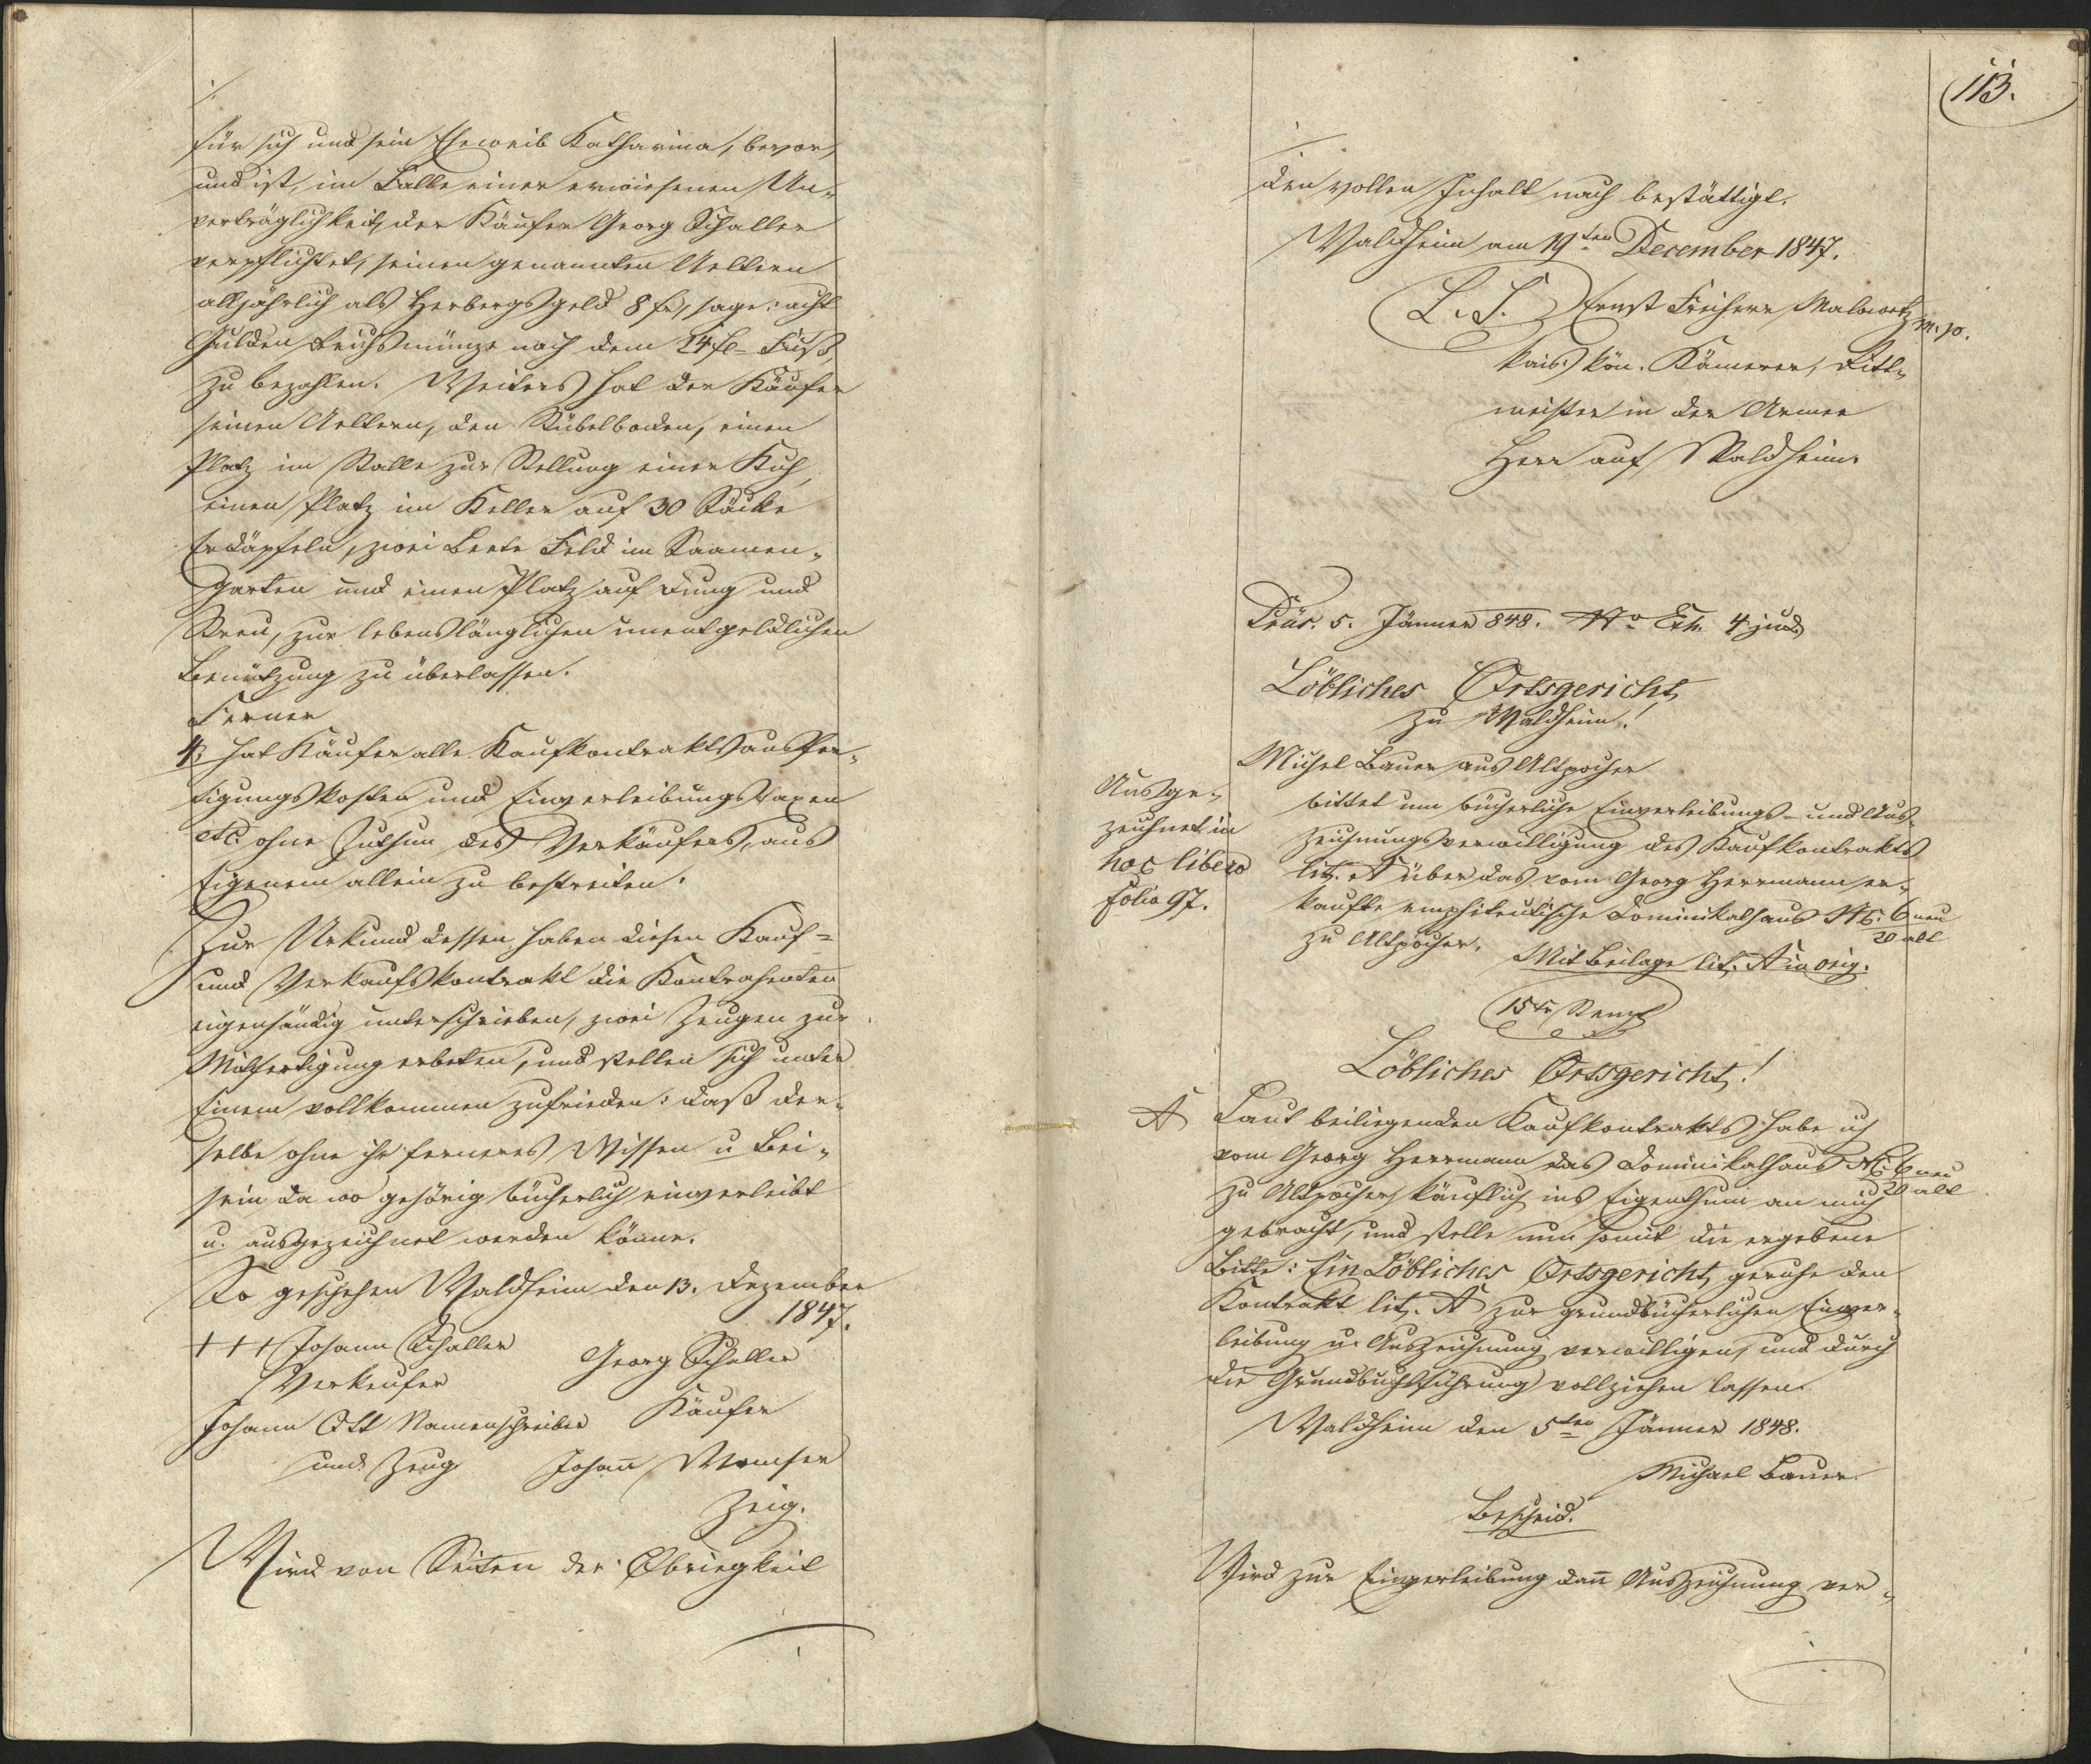 für sich und sein Eheweib Katharina, bevor,
und ist, im Falle einer erwiesenen Un-
verträglichkeit, der Käufer Georg Schaller
verpflichtet, seinen genannten Aeltern
alljährlich als Herbergsgeld 8 fr, sage: acht
Gulden Reichsmünze nach dem 24 fl- Fuß,
zu bezahlen. Weiters hat der Käufer
seinen Aeltern, den Stübelboden, einen
Platz im Stalle zur Stellung einer Kuh,
einen Platz im Keller auf 30 Säcke
Erdäpfeln, zwei Beete Feld im Saamen-
garten und einen Platz auf Dung und
Streu, zur lebenslänglichen unentgeldlichen
Benützung zu überlassen.
Ferner
4, hat Käufer alle Kaufkontraktsausfer-
tigungskosten und Einverleibungstaxen
etc. ohne Zuthun des Verkäufers, aus
Eigenem allein zu bestreiten.
Zur Urkund dessen haben diesen Kauf-
und Verkaufskontrakt die Kontrahenten
eigenhändig unterschrieben, zwei Zeugen zur
Mitfertigung erbeten, und stellen sich unter
Einem vollkommen zufrieden: daß der-
selbe ohne ihr ferneres Wissen u Bei-
sein da wo gehörig bücherlich einverleibt
u. ausgezeichnet werden könne.
So geschehen Waldheim den 13. Dezember
1847.
+++ Johann Schaller
Verkeufer
Georg Schaller
Käufer
Johann Ott Namenschreiber
und Zeug
Johañ
Zeig.
Wird von Seiten der Obriegkeit
113.
den vollen Inhalt nach bestättigt.
Waldheim am 19ten December 1847.
L. S. Ernst Freiherr Malowetz m. p.
kais. kön. Kämerer, Ritt-
meister in der Armee
Herr auf Waldheim.
Präs. 5. Jänner 848. No Exh. 4 jud.
Löbliches Ortsgericht
zu Waldheim!
Michel Bauer aus Altpocher
bittet um bücherliche Einverleibungs- und Aus-
zeichnungsverwilligung des Kaufkontrakts
lit. A über das vom Georg Herrmann er-
kaufte emphiteutische Dominikalhaus N: 6 neu
20 alt
zu Altpocher. Mit Beilage lit. A in orig.
Ausge-
zeichnet in
hoc libero
folio 97.
15 xr Stempl
Löbliches Ortsgericht!
A Laut beiliegenden Kaufkontrakts habe ich
vom Georg Herrmann das Dominikalhaus N: 6 neu
20 alt
zu Altpocher, käuflich ins Eigenthum an mich
gebracht, und stelle nun somit die ergebene
Bitte: Ein Löbliches Ortsgericht, geruhe den
Kontrakt lit. A zur grundbücherlichen Einver-
leibung u. Auszeichnung verwilligen, und durch
die Grundbuchsführung vollziehen lassen.
Waldheim den 5ten Jänner 1848.
Michael Bauer
Bescheid.
Wird zur Einverleibung dañ Auszeichnung ver-